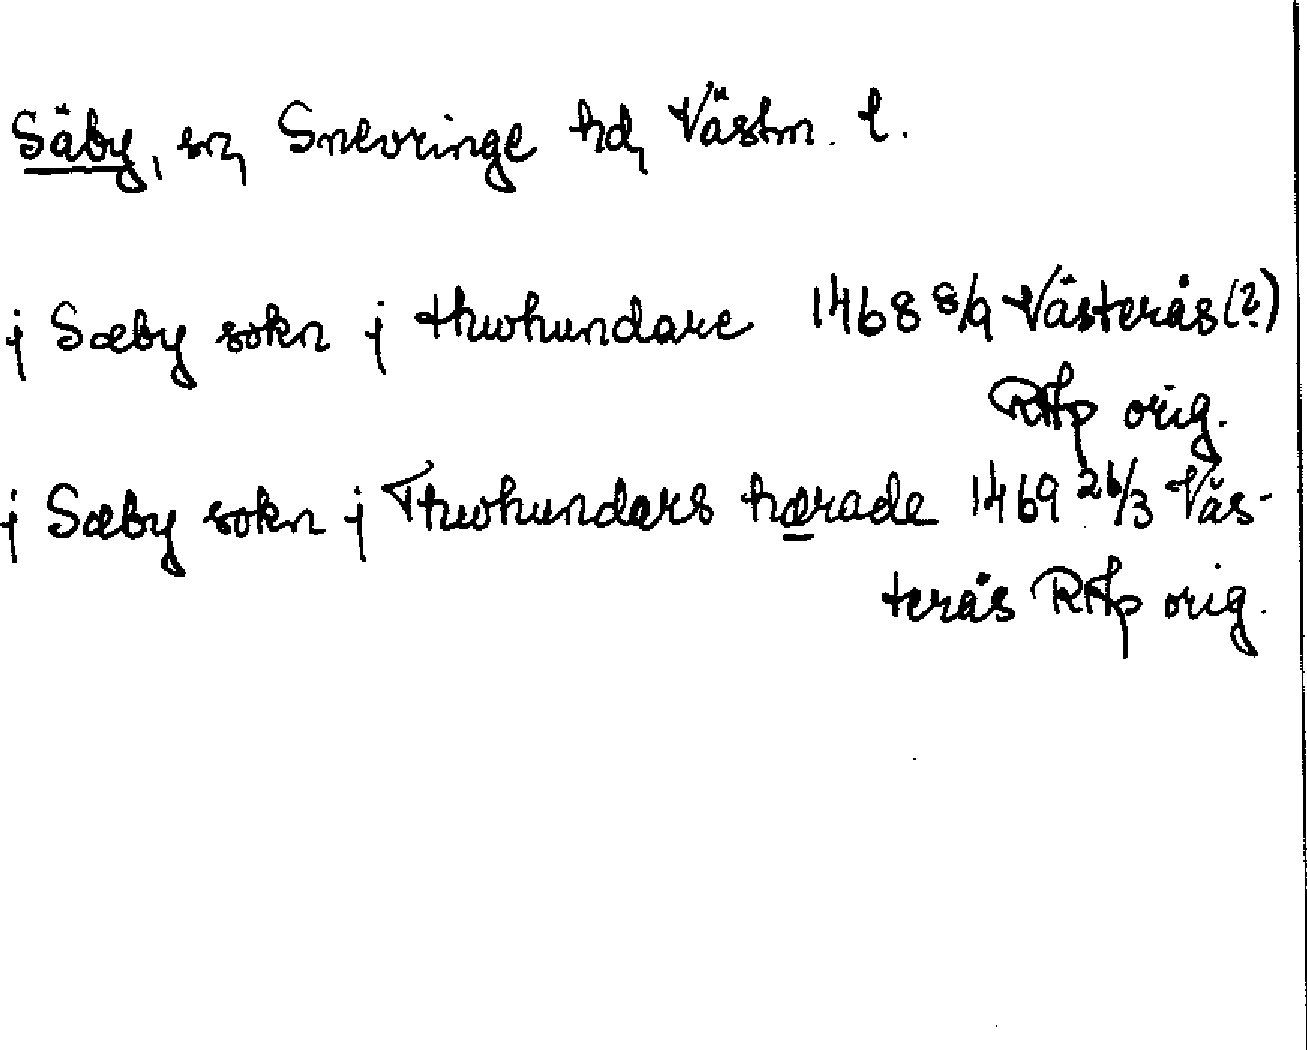 Säby, sn, Snevringe hd, Västm. l.
j Sæby sokn j thwhundare 1468 8/9 Västerås (?)
RAp orig.
j Sæby sokn j Thwhundars hærade 1469 26/3 Väs-
terås RAp orig.